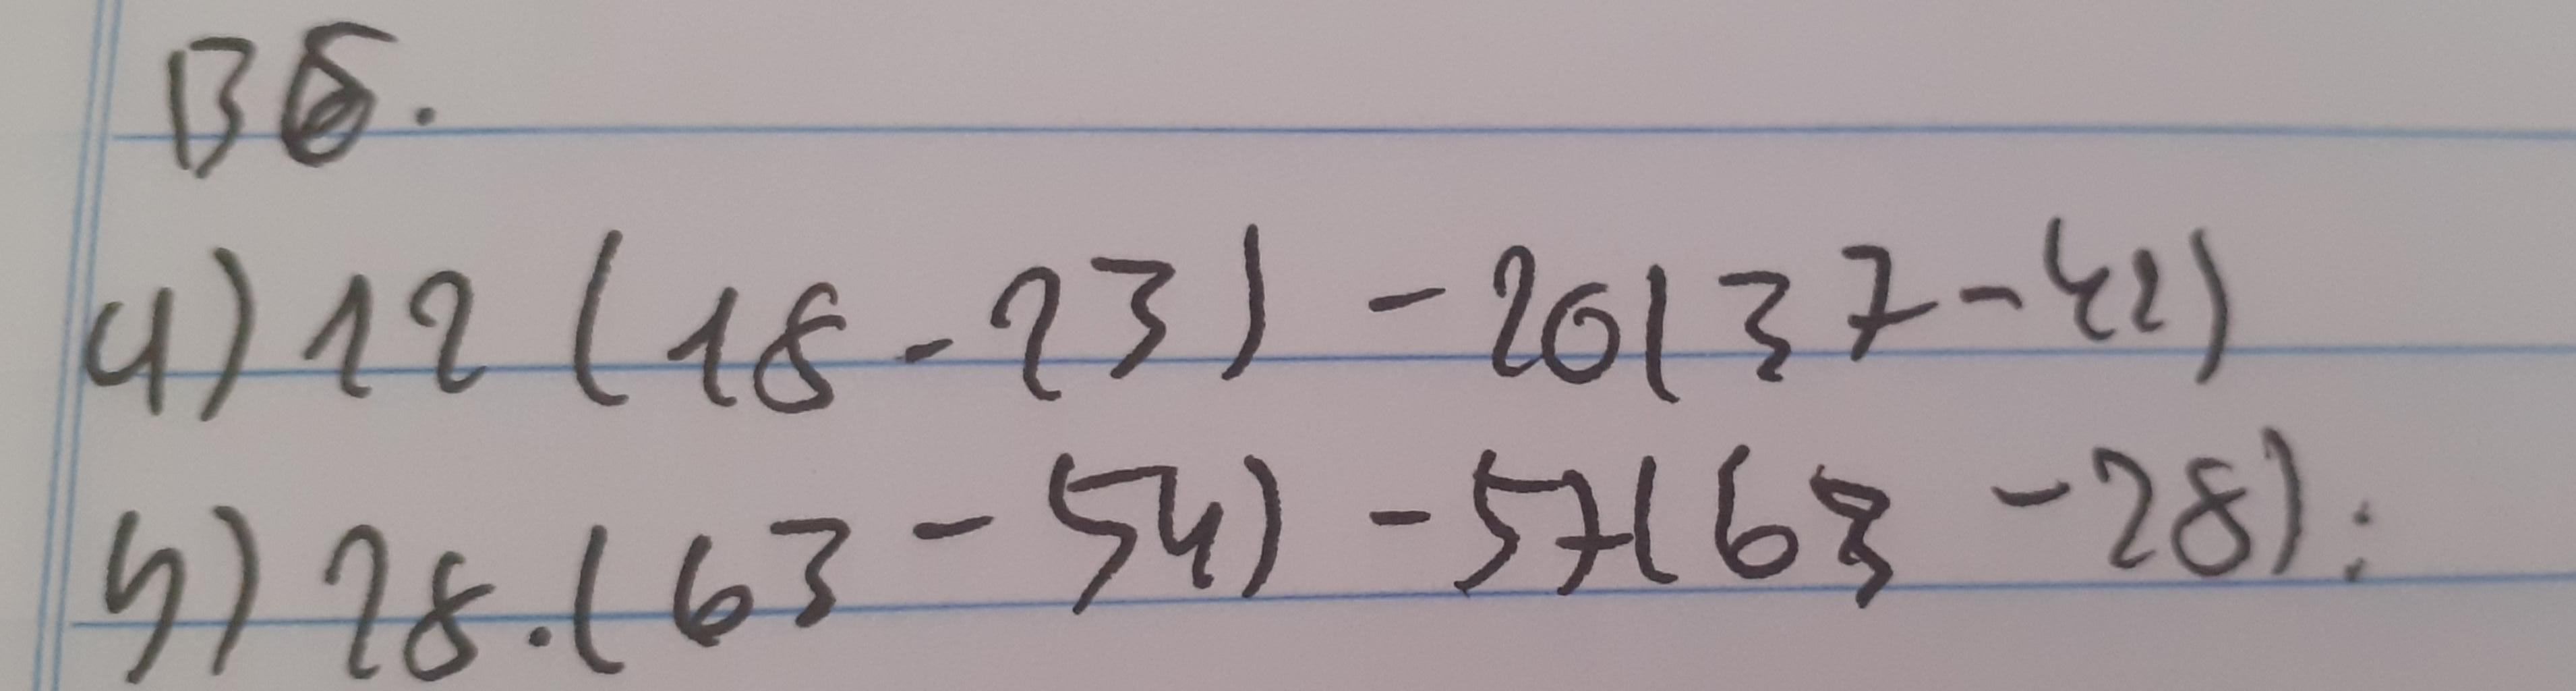 B6.
a) 12 ( 18 - 23 ) - 20 ( 37 - 42 )
b) 28 . ( 63 - 54 ) - 57 ( 63 - 28 ) ;